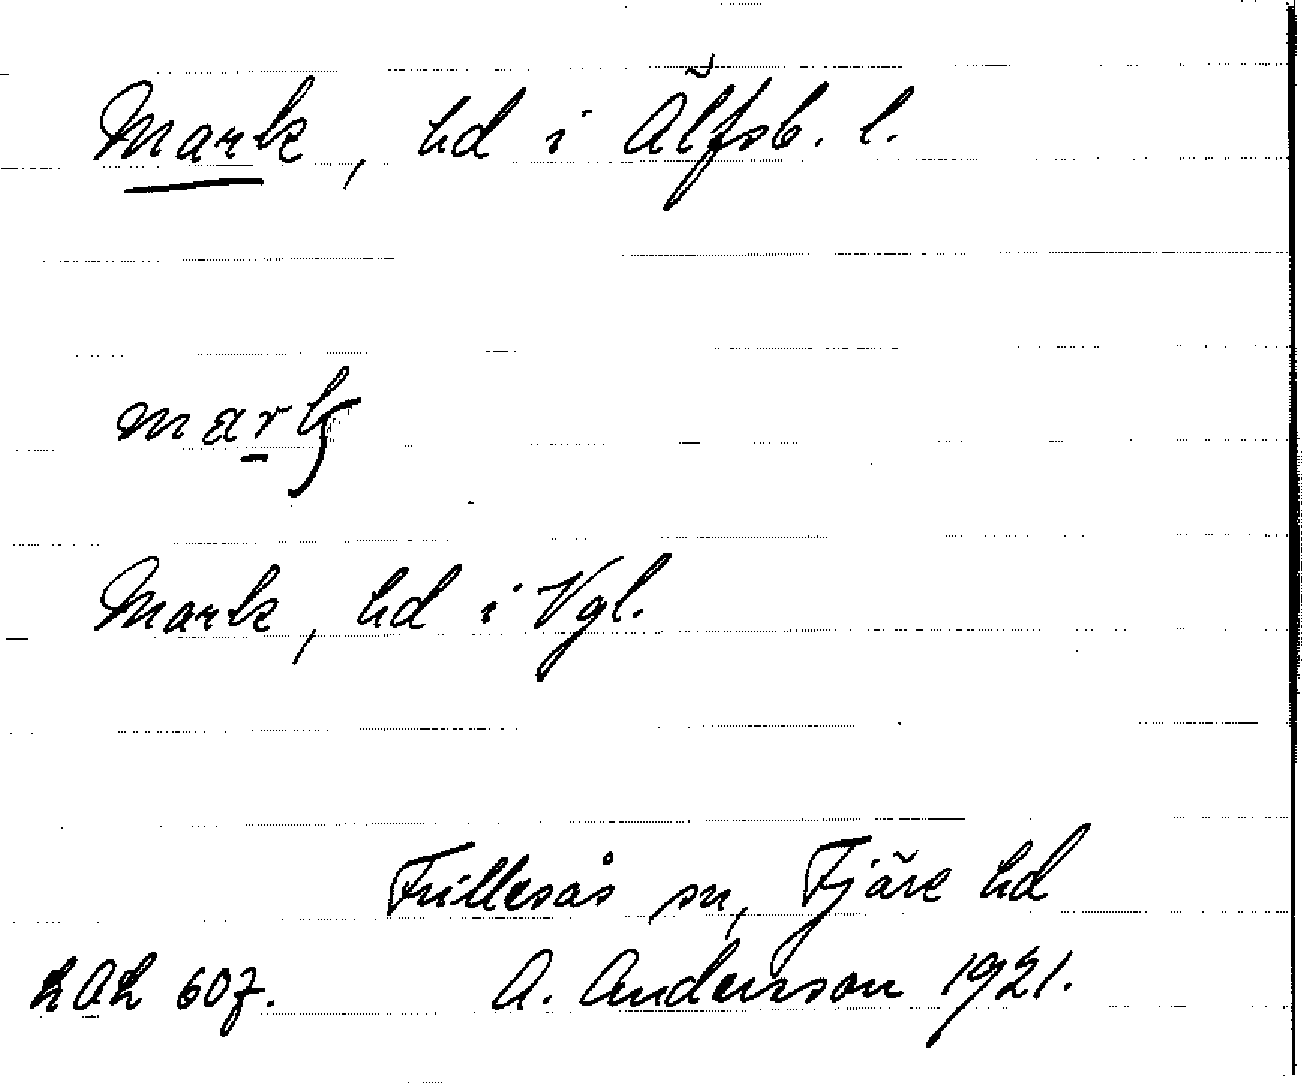 Mark, hd i Älfsb. l.
mark
Mark, hd i Vgl.
Frillesås sn, Fjäre hd
LAL 607. A. Andersson 1921.